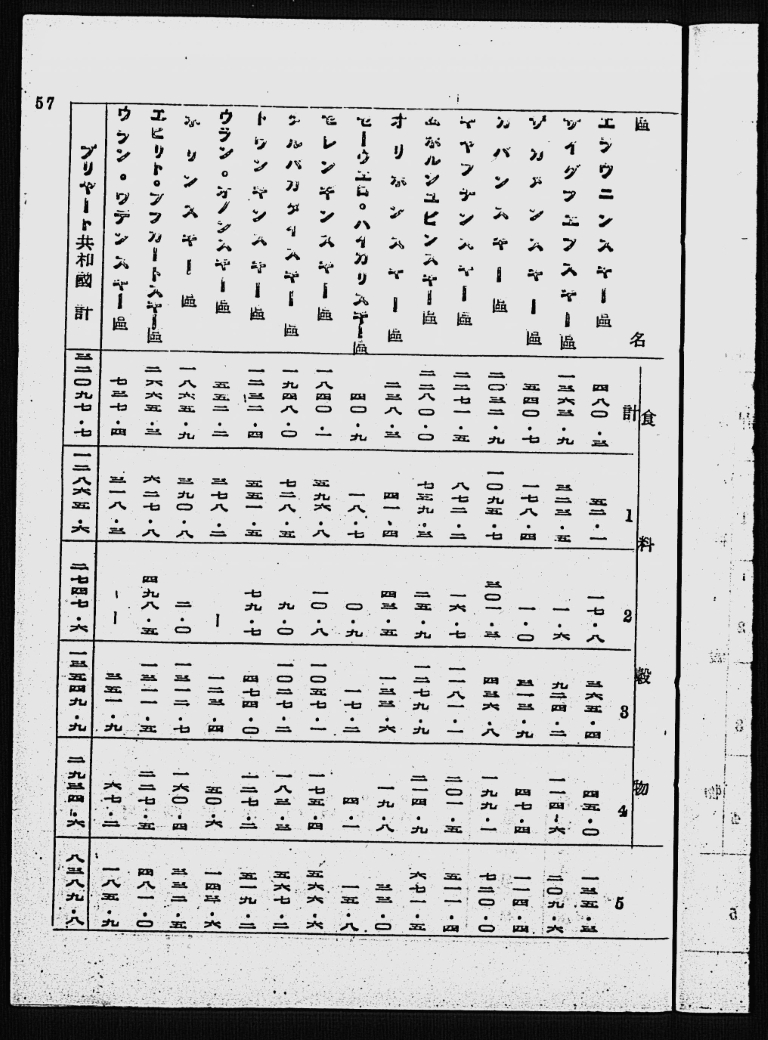 57
區名 食料穀物
計 1 2 3 4 5
エラウニンスキー區 四八〇・三 五二・一 一七・八 三六五・四 四五・〇 一三五・三
ザイグラエフスキー區 一三六三・九 三二三・五 一・六 九二四・二 一一四・六 二〇九・六
ザカメンスキー區 五四〇・七 一七八・四 一・〇 三一三・九 四七・四 一一四・四
カバンスキー區 二〇三二・九 一〇九五・七 三〇一・三 四三六・八 一九九・一 七二〇・〇
キヤフチンスキー區 二二七一・五 八七二・二 一六・七 一一八一・一 二〇一・五 五一一・四
ムホルシユビンスキー區 二二八〇・〇 七五九・三 二五・九 一二七九・九 二一四・九 六七一・五
オリホンスキー區 二三八・三 四一・四 四三・五 一三三・六 一九・八 三三・〇
セーウエロ・バイカリスキー區 四〇・九 一八・七 〇・九 一七・二 四・一 一五・八
セレンギンスキー區 一八四〇・一 五九六・八 一〇・八 一〇五七・一 一七五・四 五六六・六
タルバガタイスキー區 一九四八・〇 七二八・五 九・〇 一〇二七・二 一八三・三 五六七・二
トウンキンスキー區 一二三二・四 五五一・五 七九・七 四七四・〇 一二七・二 五一九・二
ウラン・オノンスキー區 五五二・二 三七八・二 ー 一二三・四 五〇・六 一四三・六
ホリンスキー區 一八六五・九 三九〇・八 二・〇 一三一二・七 一六〇・四 三三二・五
エヒリト・ブラガートスキー區 二六六五・三 六二七・八 四九八・五 一三一一・五 二二七・五 四八一・〇
ウラン・ウデンスキー區 七三七・四 三一八・三 ー 三五一・九 六七・二 一八五・九
ブリヤート共和國 計 三二〇九七・七 一二八六五・六 二七四七・六 一三五四九・九 二九三四・六 八三八九・八